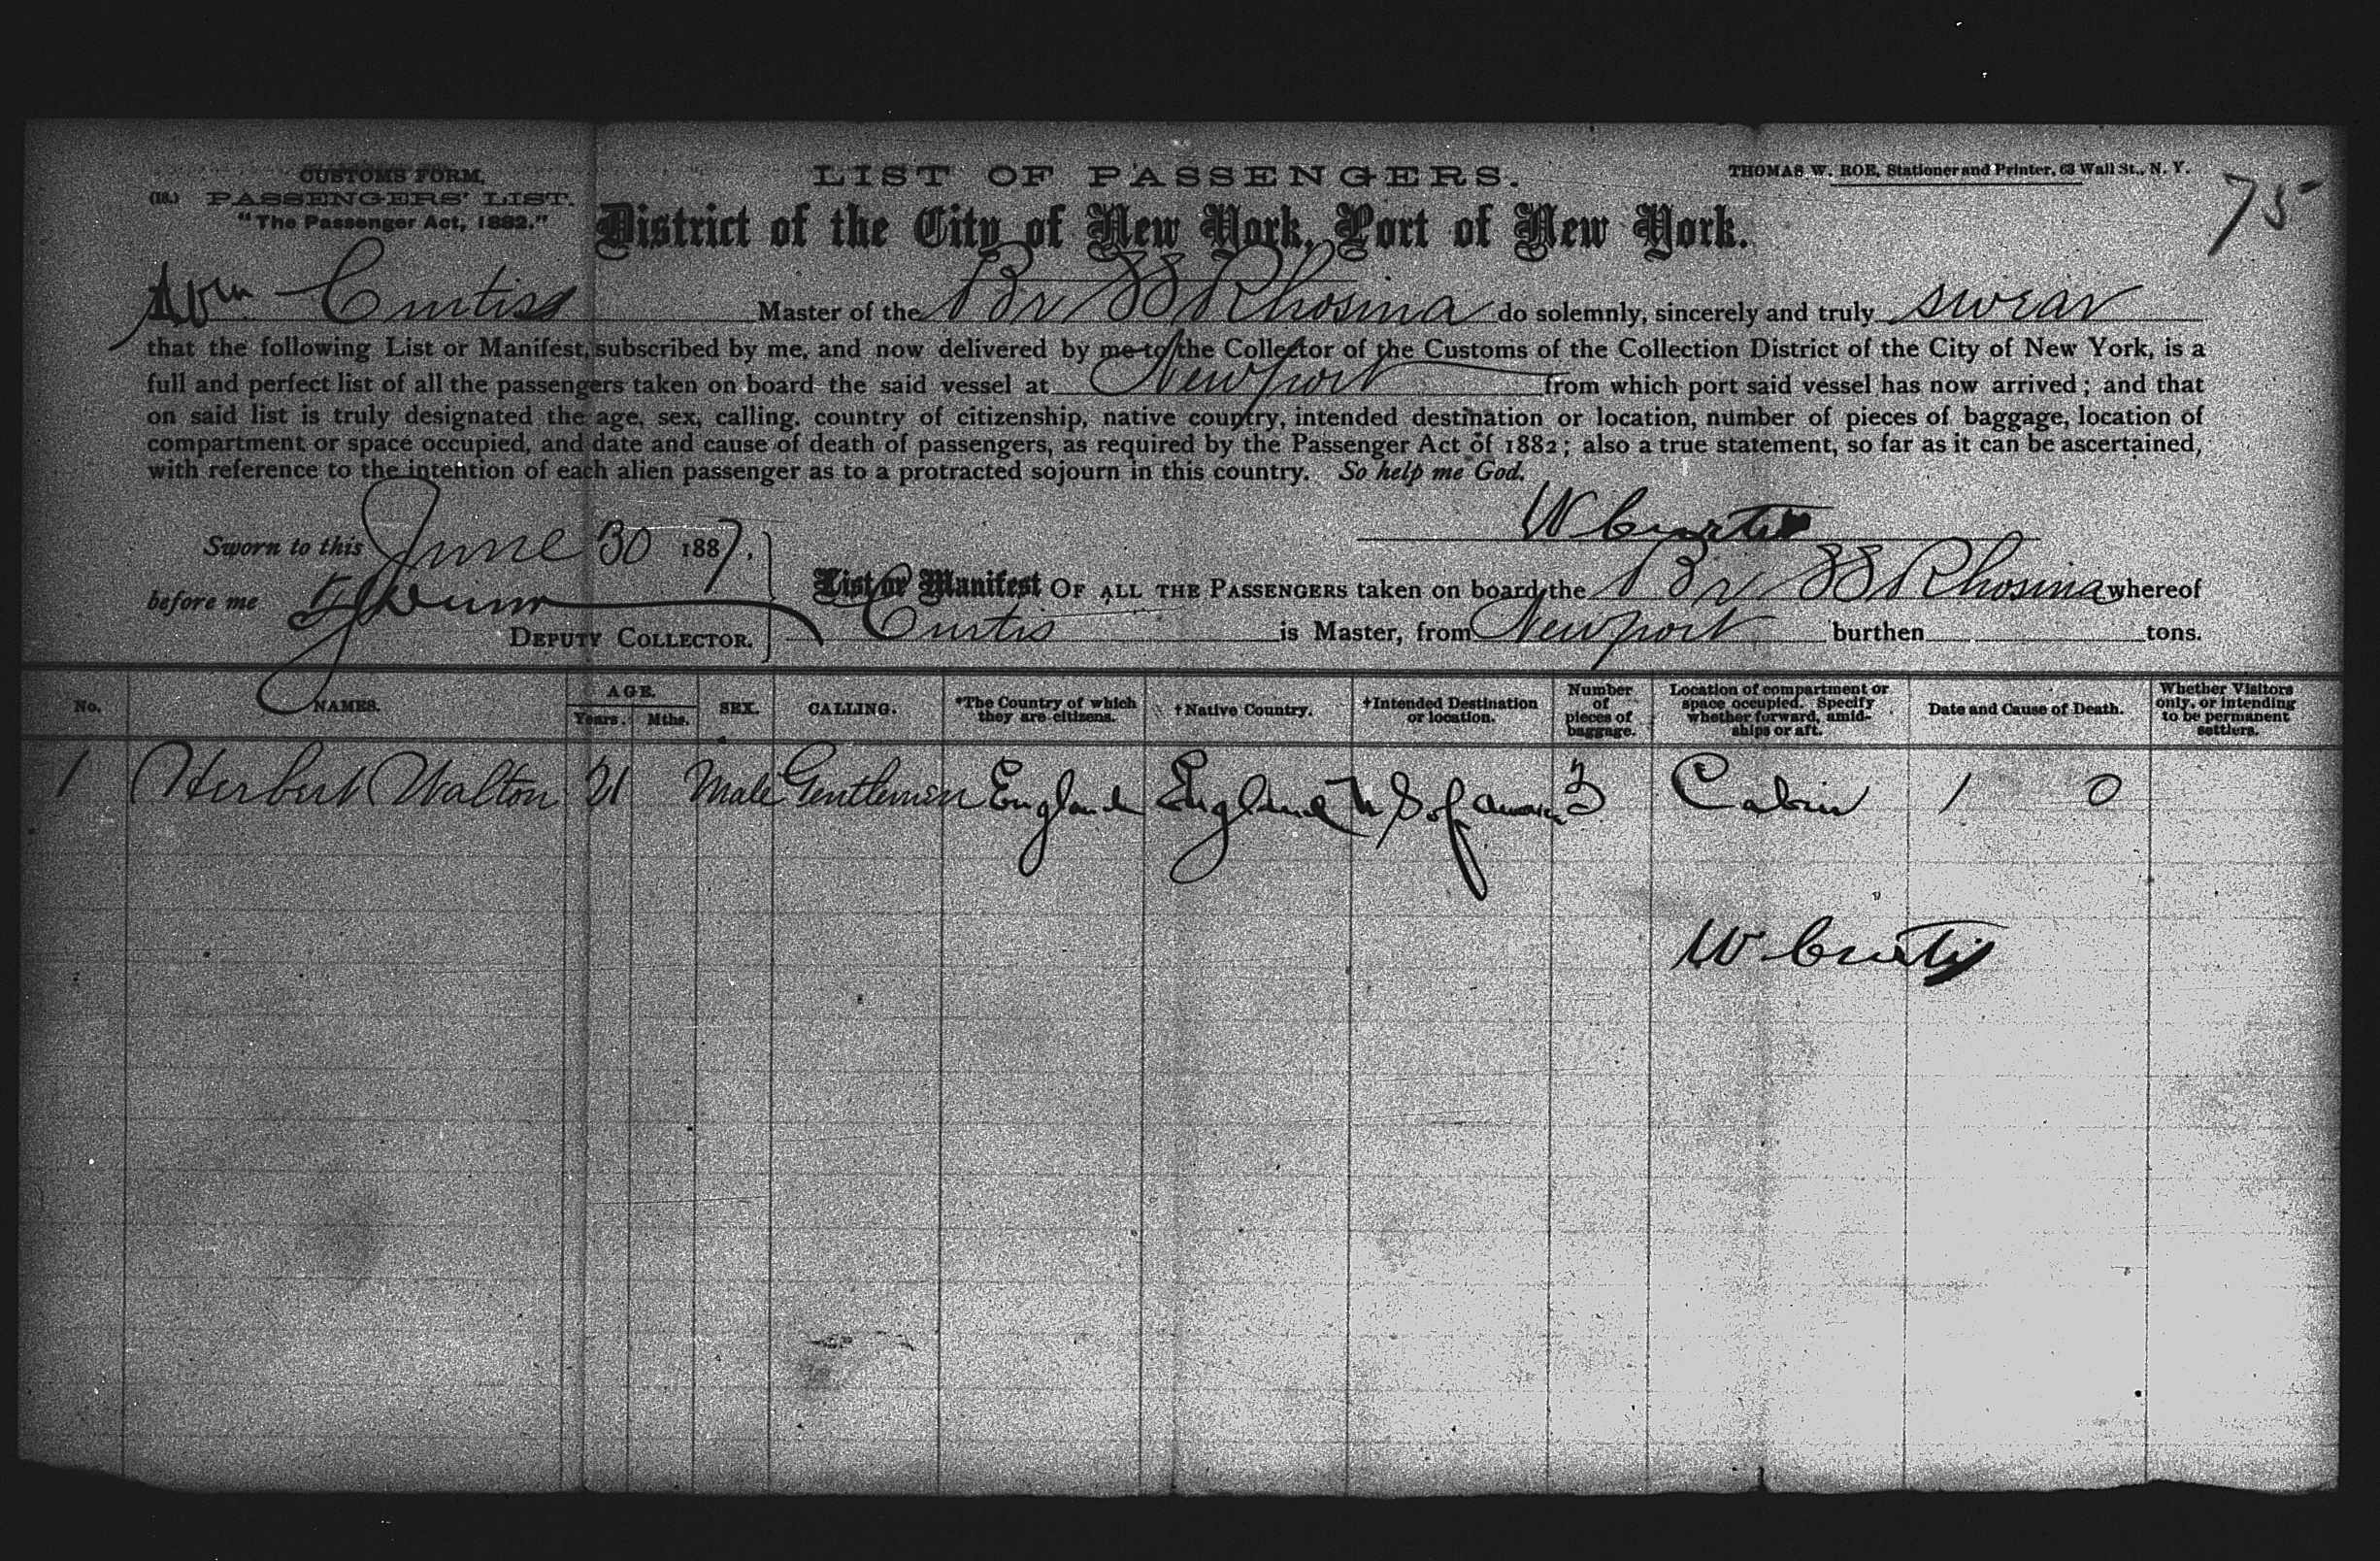 CUSTOMS FORM.
(18.) PASSENGERS' LIST.
"The Passenger Act, 1882."
LIST OF PASSENGERS.
THOMAS W. ROE, Stationer and Printer, 63 Wall St., N. Y.
75
District of the City of New York, Port of New York.
I Wm Curtiss Master of the Br SS Rhosina do solemnly, sincerely and truly swear
that the following List or Manifest, subscribed by me, and now delivered by me to the Collector of the Customs of the Collection District of the City of New York, is a
full and perfect list of all the passengers taken on board the said vessel at Newport from which port said vessel has now arrived; and that
on said list is truly designated the age, sex, calling, country of citizenship, native country, intended destination or location, number of pieces of baggage, location of
compartment or space occupied, and date and cause of death of passengers, as required by the Passenger Act of 1882; also a true statement, so far as it can be ascertained,
with reference to the intention of each alien passenger as to a protracted sojourn in this country. So help me God.
W Curtis
Sworn to this June 30 1887.
before me Dunn
DEPUTY COLLECTOR.
List or Manifest OF ALL THE PASSENGERS taken on board the Br SS Rhosina whereof
Curtis is Master, from Newport burthen tons.
No. NAMES. AGE. Years. Mths. SEX. CALLING. *The Country of which they are citizens. †Native Country. †Intended Destination or location. Number of pieces of baggage. Location of compartment or space occupied. Specify whether forward, amidships or aft. Date and Cause of Death. Whether Visitors only, or intending to be permanent settlers.
1 Herbert Walton 21 Male Gentleman England England U S of America 3 Cabin 1 0
W Curtis